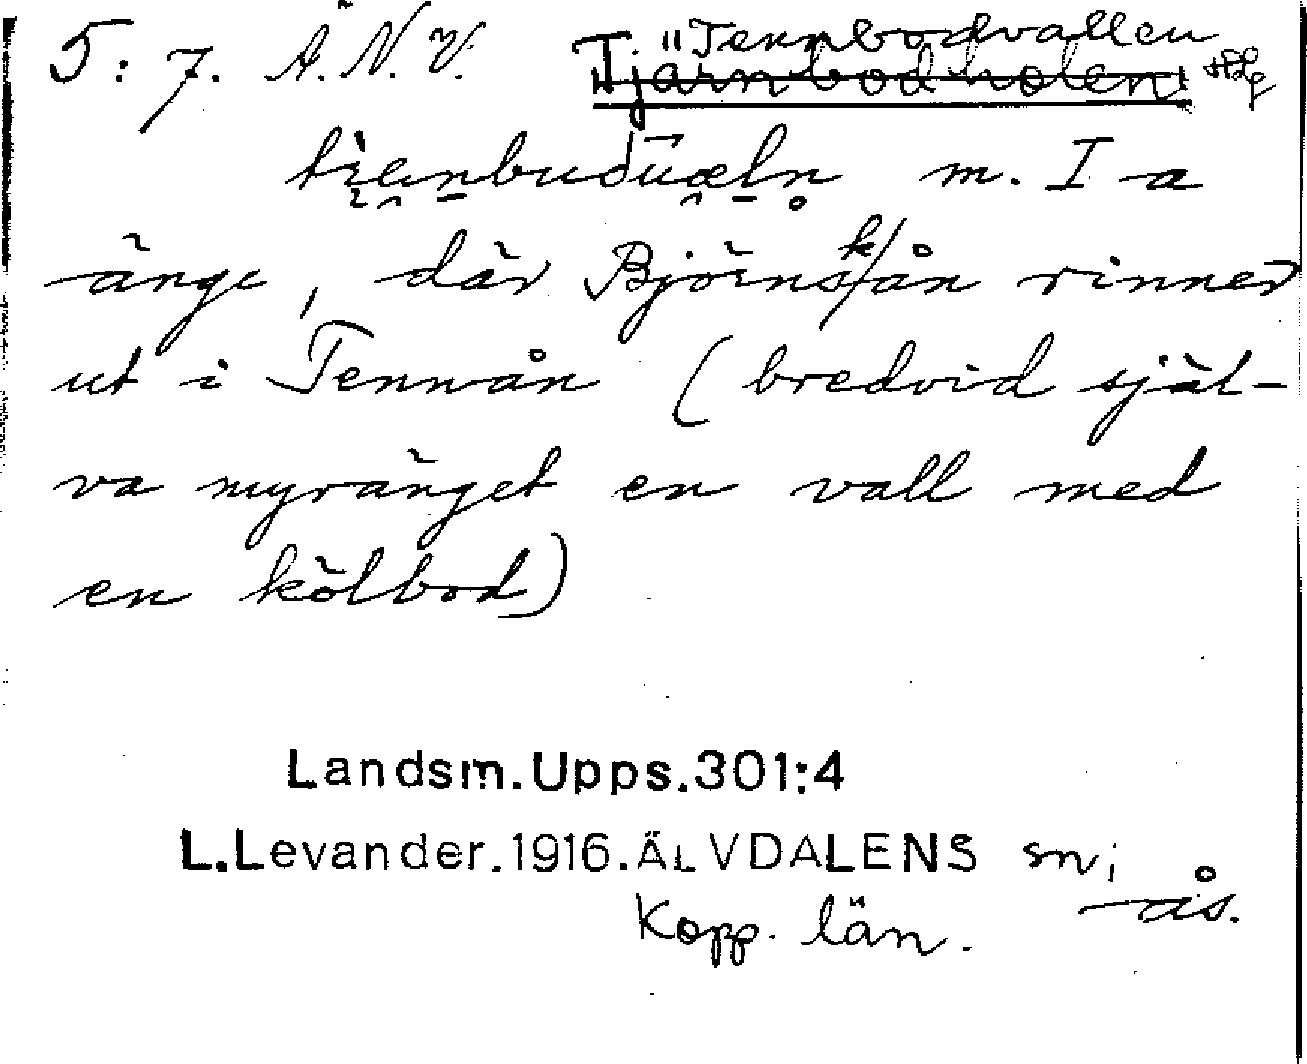 5:7. Ä.N.V. "Tennbodvallen
Tjärnbodholen
m. I a
änge, där Björnskån rinner
ut i Tennån (bredvid själ-
va myränget en vall med
en kölbod)
Landsm.Upps.301:4
L.Levander.1916.ÄLVDALENS sn;
Kopp. län. ås.